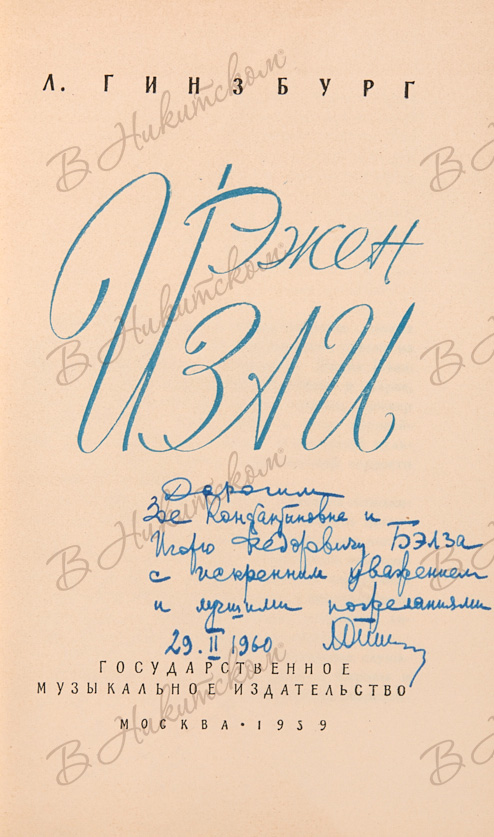 Л. ГИНЗБУРГ
Эжен
ИЗАИ
Дорогим
Зое Константиновне и
Игорю Федоровичу БЭЛЗА
с искренним уважением
и лучшими пожеланиями
29.II 1960
ГОСУДАРСТВЕННОЕ
МУЗЫКАЛЬНОЕ ИЗДАТЕЛЬСТВО
МОСКВА • 1959
В Никитском
В Никитском
В Никитском
В Никитском